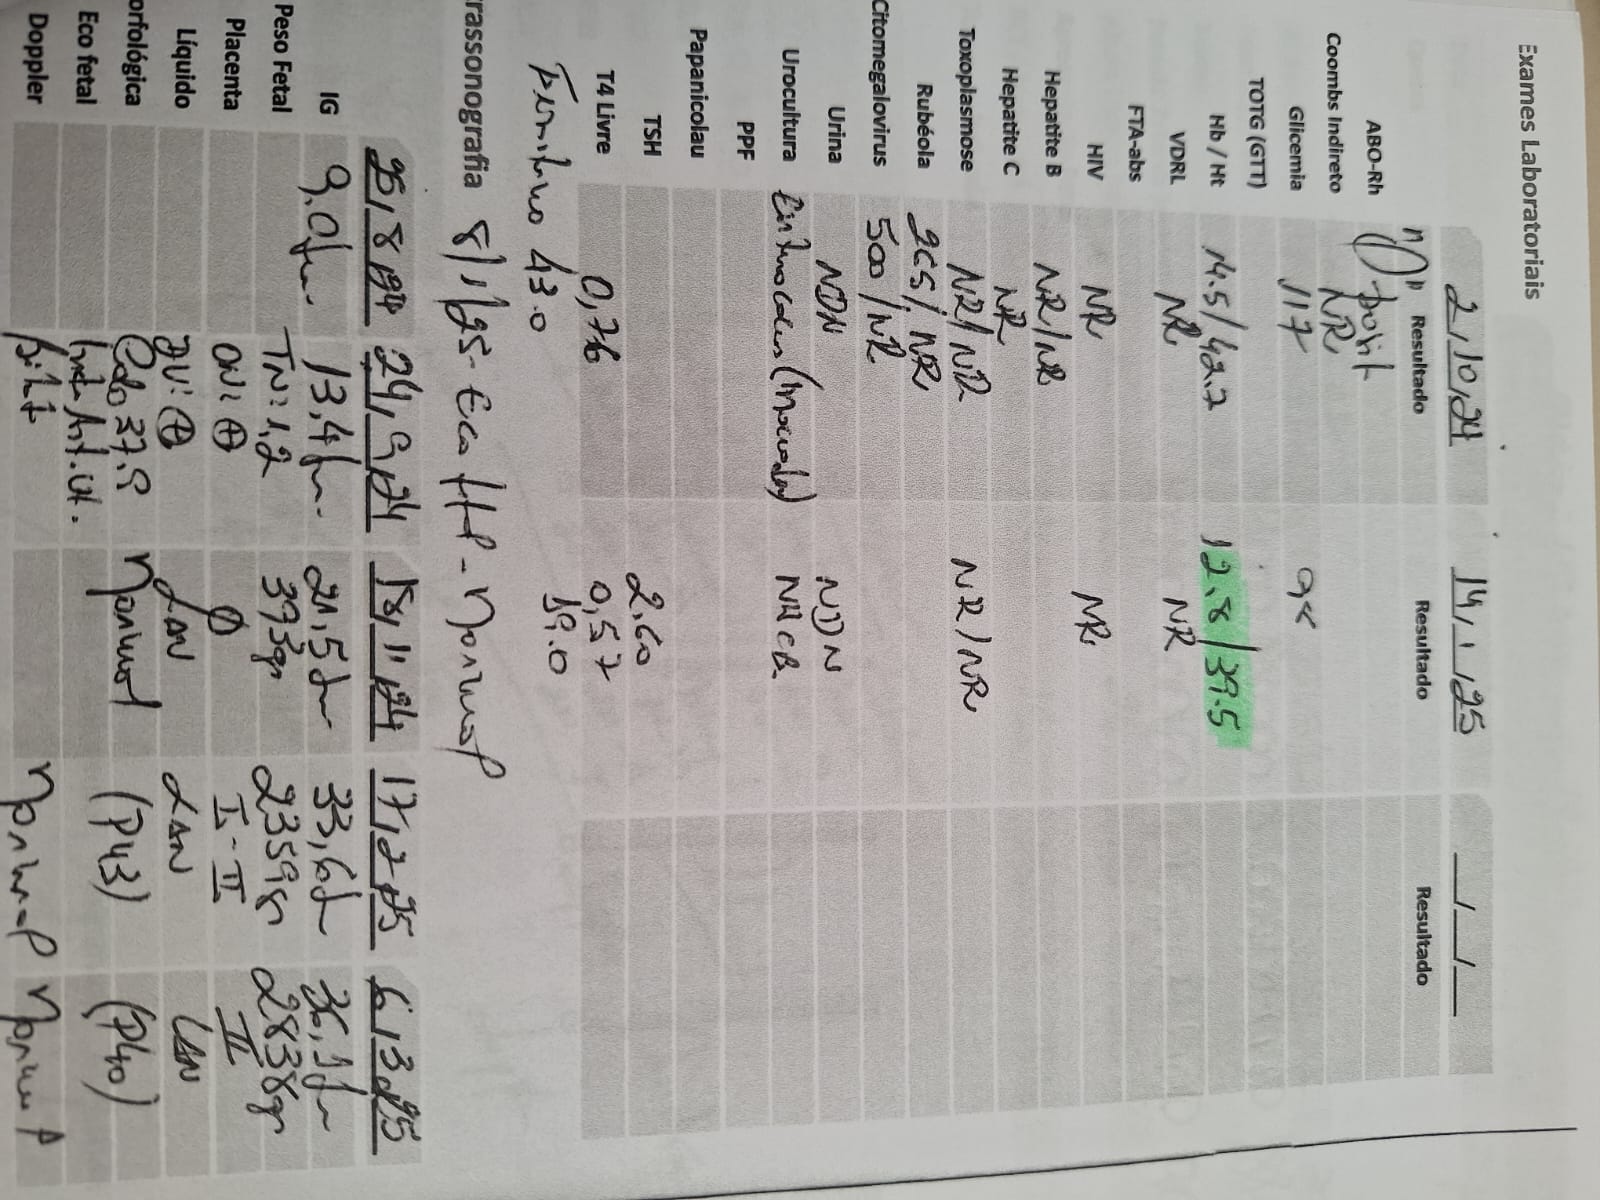 Exames Laboratoriais
2/10/24 14/1/25 __/__/__
Resultado Resultado Resultado
ABO-Rh "O" posit
Coombs Indireto NR
Glicemia 117 98
TOTG (GTT)
Hb / Ht 14.5/42.7 12.8/39.5
VDRL NR NR
FTA-abs
HIV NR NR
Hepatite B NR/NR
Hepatite C NR
Toxoplasmose NR/NR NR/NR
Rubéola 265/NR
Citomegalovirus 500/NR
Urina NDN NDN
Urocultura NHCB
PPF
Papanicolau
TSH 2,60
T4 Livre 0,76 0,57
43.0 19.0
rassonografia 8/1/25 - Eco fetal - normal
25/8/24 24/9/24 18/11/24 17/2/25 6/3/25
IG 13,4 21,5 33,6 36,1
Peso Fetal TN: 1,2 393gr 2359gr 2838gr
Placenta ON: ⊕ I-II II
Líquido DV: ⊕ LAN LAN LAN
orfológica Colo 37.9 normal
Eco fetal (P43) (P40)
Doppler normal normal